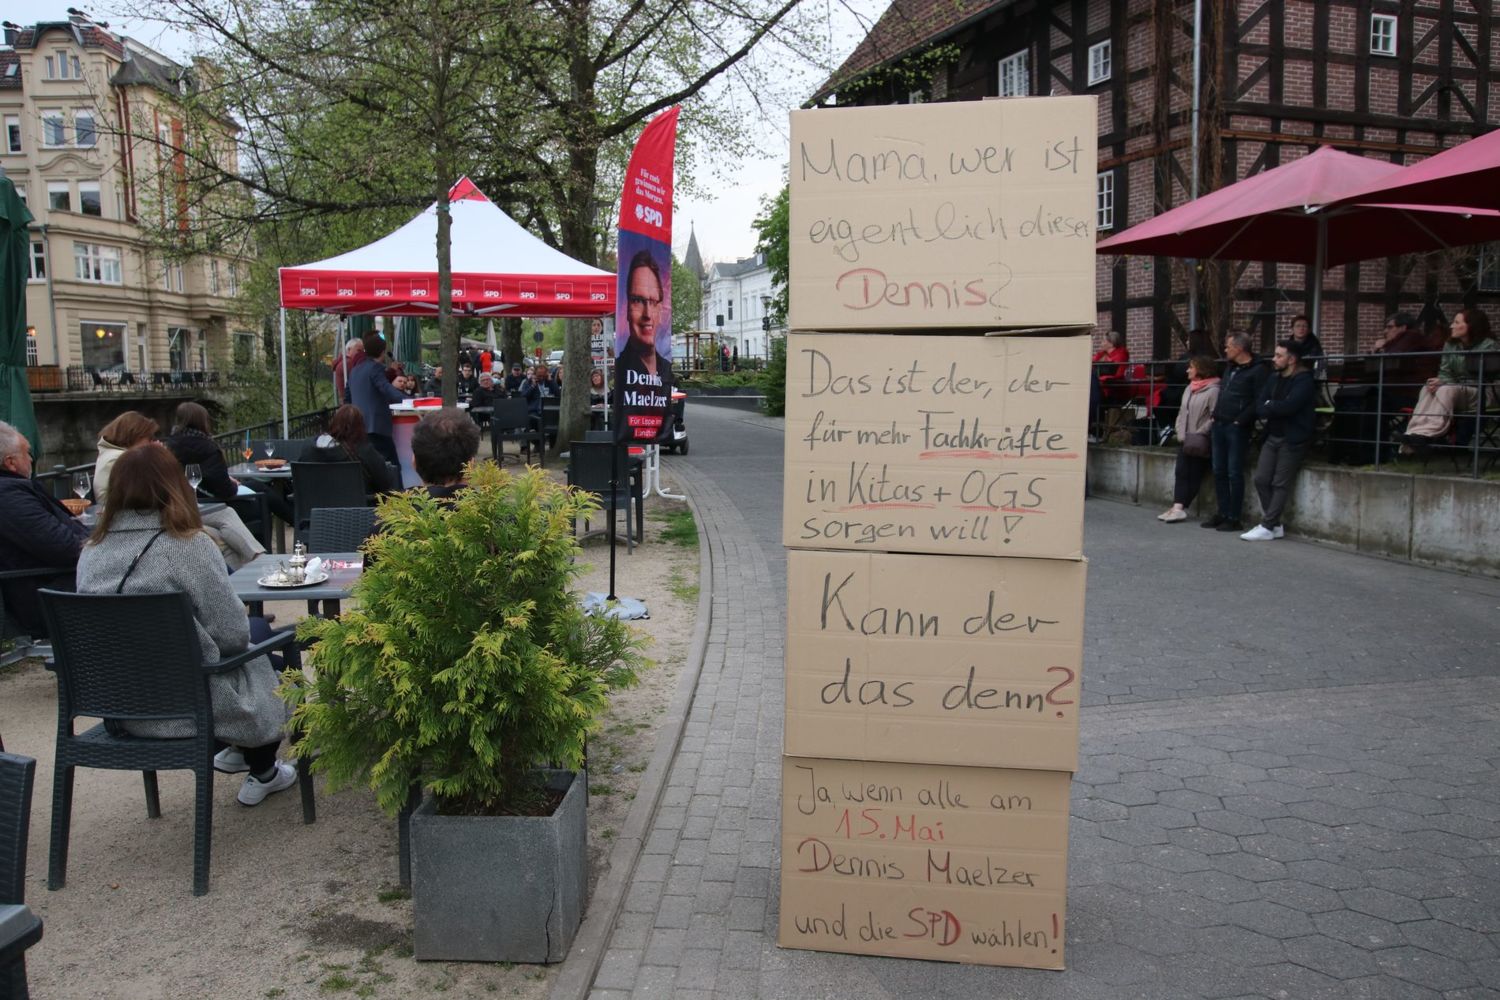 Für euch
gewinnen wir
das Morgen.
SPD
SPD
SPD
SPD
SPD
SPD
SPD
SPD
SPD
SPD
Dennis
Maelzer
Für Lippe im
Landtag
Mama, wer ist
eigentlich dieser
Dennis?
Das ist der, der
für mehr Fachkräfte
in Kitas + OGS
sorgen will!
Kann der
das denn?
Ja, wenn alle am
15. Mai
Dennis Maelzer
und die SPD wählen!